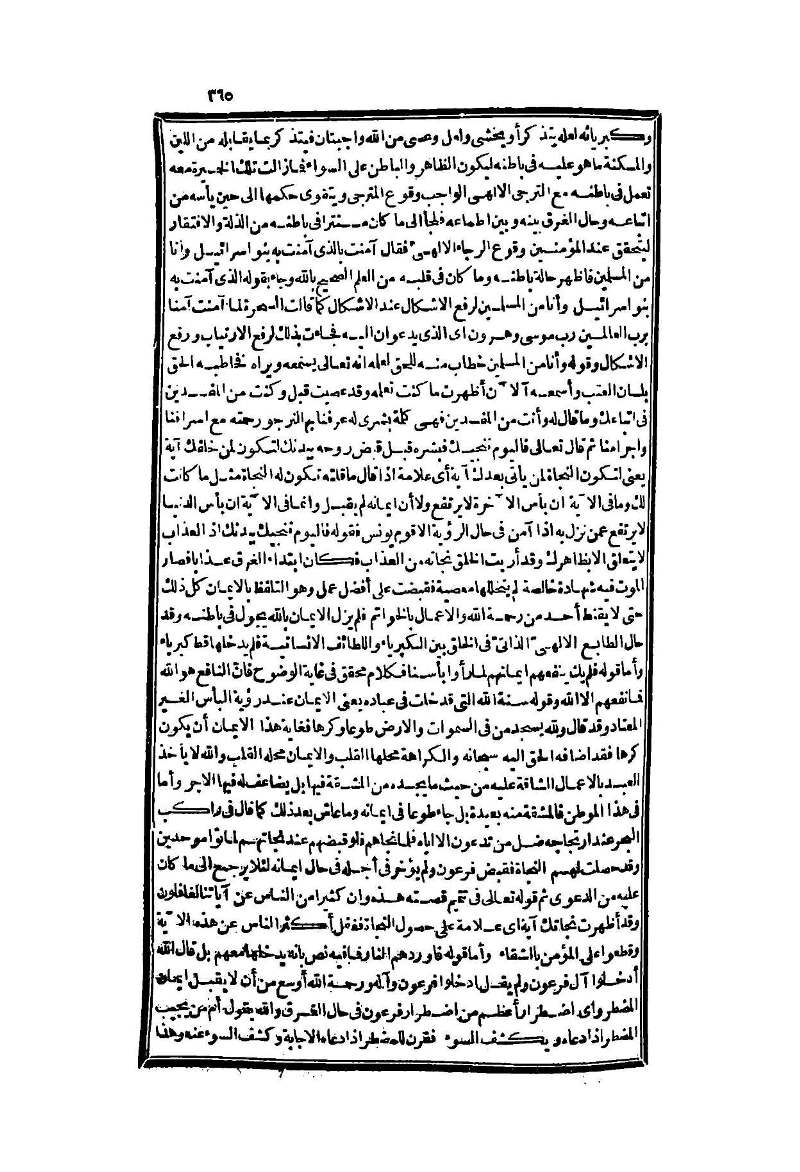 ٣٦٥
وكبريائه لعله يتذكر أو يخشى ولعل وعسى من الله واجبتان فيتذكر بما يقابله من اللين
والمسكنة ما هو عليه في باطنه ليكون الظاهر والباطن على السواء فما زالت تلك الخميرة معه
تعمل في باطنه مع الترجي الالهي الواجب وقوع المترجى ويتقوى حكمها الى حين يأسه من
اتباعه وحال الغرق بينه وبين اطماعه فلجأ الى ما كان مستترا في باطنه من الذلة والافتقار
ليتحقق عند المؤمنين وقوع الرجاء الالهي فقال آمنت بالذى آمنت به بنو اسرائيل وانا
من المسلمين فاظهر حالة باطنه وما كان في قلبه من العلم الصحيح بالله وجاء بقوله الذى آمنت به
بنو اسرائيل وأنا من المسلمين لرفع الاشكال عند الاشكال كما قالت السحرة لما آمنت آمنا
برب العالمين رب موسى وهرون اى الذى يدعوان اليه فجاءت بذلك لرفع الارتياب ورفع
الاشكال وقوله وأنا من المسلمين خطاب منه للحق لعلمه انه تعالى يسمعه ويراه فخاطبه الحق
بلسان العتب وأسمعه آلآن أظهرت ما كنت تعلمه وقد عصيت قبل وكنت من المفسدين
في اتباعك وما قال له وأنت من المفسدين فهى كلمة بشرى له عرفنا بها لنرجو رحمته مع اسرافنا
واجرامنا ثم قال تعالى فاليوم ننجيك فبشره قبل قبض روحه ببدنك لتكون لمن خلفك آية
يعنى لتكون النجاة لمن يأتى بعدك آية أى علامة اذا قال ما قلته تكون له النجاة مثل ما كانت
لك وما في الآية ان بأس الآخرة لا يرتفع ولا أن ايمانه لم يقبل وانما في الآية ان بأس الدنيا
لا يرتفع عمن نزل به اذا آمن في حال الرؤية الا قوم يونس فقوله فاليوم ننجيك ببدنك اذ العذاب
لا يتعلق الا بظاهرك وقد أريت الخلق نجاته من العذاب فكان ابتداء الغرق عذابا فصار
الموت فيه شهادة خالصة لم يتخللها معصية فقبضت على أفضل عمل وهو التلفظ بالايمان كل ذلك
حتى لا يقنط أحد من رحمة الله والاعمال بالخواتم فلم يزل الايمان بالله يجول في باطنه وقد
حال الطابع الالهي الذاتي في الخلق بين الكبرياء واللطائف الانسانية فلم يدخلها قط كبرياء
وأما قوله فلم يك ينفعهم ايمانهم لما رأوا بأسنا فكلام محقق في غاية الوضوح فان النافع هو الله
فما نفعهم الا الله وقوله سنة الله التي قد خلت في عباده يعنى الايمان عند رؤية البأس الغير
المعتاد وقد قال ولله يسجد من في السموات والارض طوعا وكرها فغاية هذا الايمان أن يكون
كرها فقد اضافه الحق اليه سبحانه والكراهة محلها القلب والايمان محله القلب والله لا يأخذ
العبد بالاعمال الشاقة عليه من حيث ما يجده من المشقة فيها بل يضاعف له فيها الاجر وأما
في هذا الموطن فالمشقة منه بعيدة بل جاء طوعا في ايمانه وما عاش بعد ذلك كما قال في راكب
البحر عند ارتجاجه ضل من تدعون الا اياه فلما نجاهم فلو قبضهم عند نجاتهم لماتوا موحدين
وقد حصلت لهم النجاة فقبض فرعون ولم يؤخر في أجله في حال ايمانه لئلا يرجع الى ما كان
عليه من الدعوى ثم قوله تعالى في تتميم قصته هذه وان كثيرا من الناس عن آياتنا لغافلون
وقد أظهرت نجاتك آية اى علامة على حصول النجاة فغفل أكثر الناس عن هذه الآية
وقطعوا على المؤمن بالشقاء وأما قوله فاوردهم النار فما فيه نص بانه يدخلها معهم بل قال الله
أدخلوا آل فرعون ولم يقل ادخلوا فرعون وآله ورحمة الله أوسع من أن لا يقبل ايمان
المضطر واى اضطرار أعظم من اضطرار فرعون في حال الغرق والله يقول أمن يجيب
المضطر اذا دعاه ويكشف السوء فقرن للمضطر اذا دعاه الاجابة وكشف السوء عنه وهذا